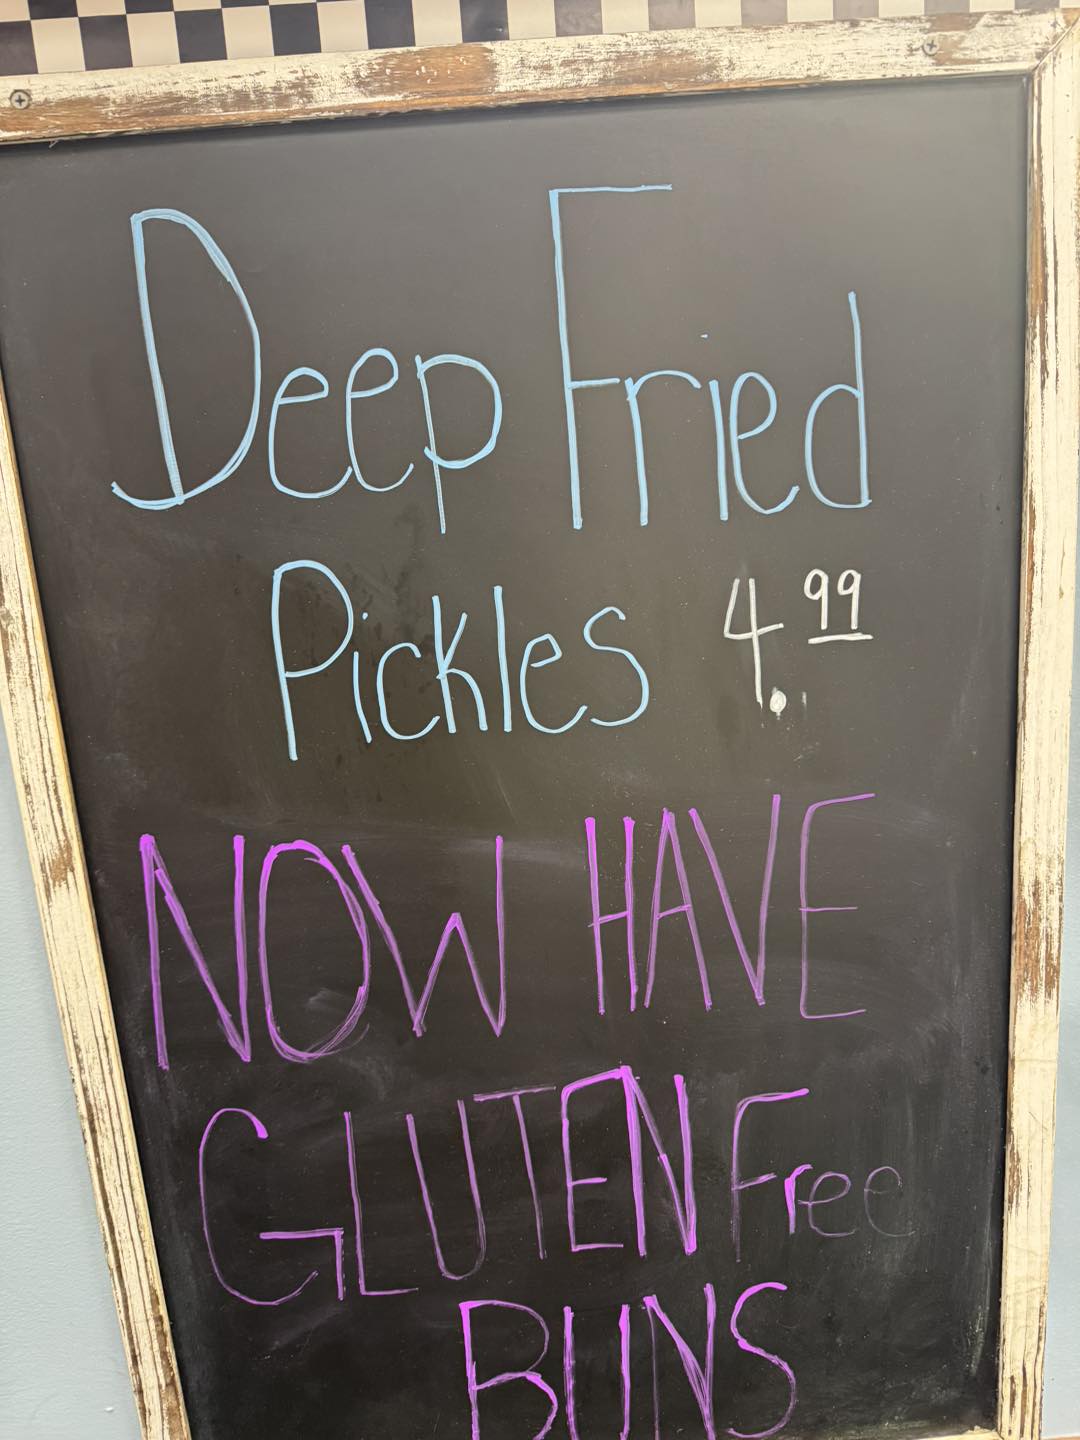 Deep Fried
Pickles 4.99
NOW HAVE
GLUTEN Free
BUNS